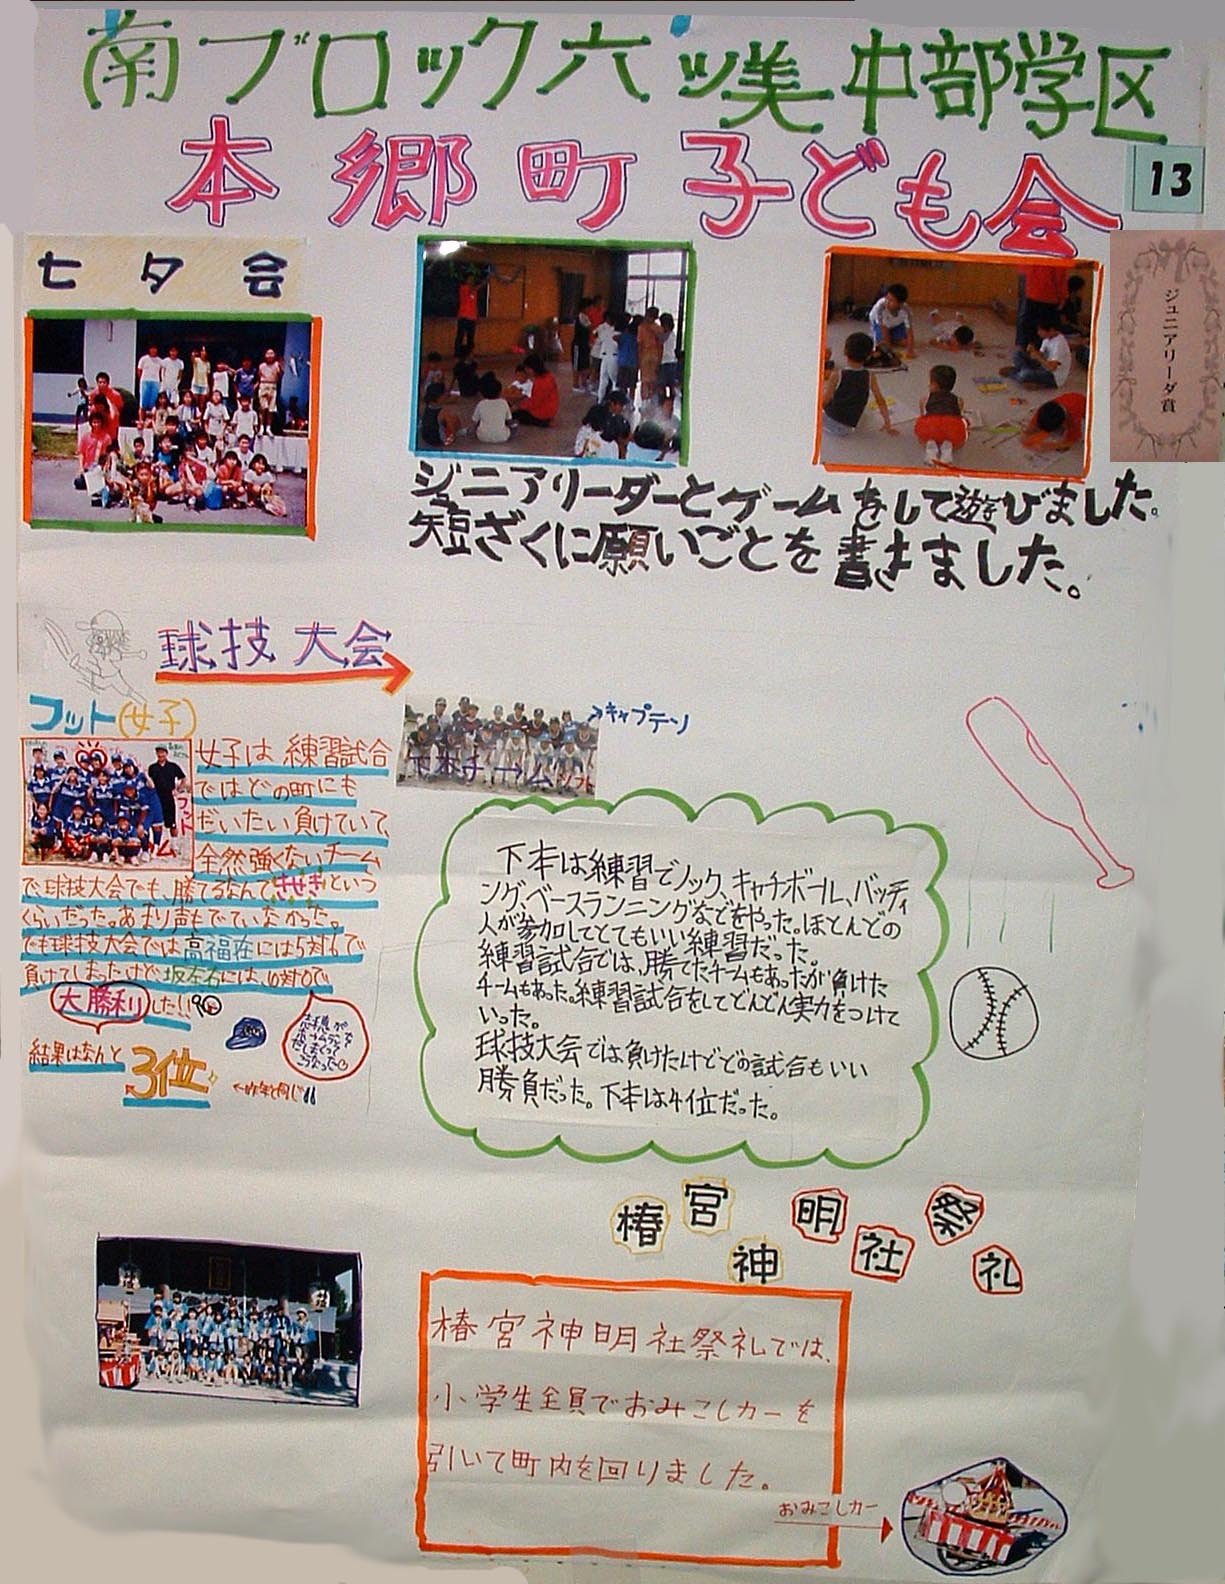 南ブロック六ッ美中部学区
本郷町子ども会
13
七夕会
ジュニアリーダ賞
ジュニアリーダーとゲームをして遊びました。
短ざくに願いごとを書きました。
球技大会
フット(女子)
キャプテン
下本チームソフト
フット
女子は練習試合
ではどの町にも
だいたい負けていて、
全然強くないチーム
で、球技大会でも、勝てるなんてきせきという
くらいだった。あまり声もでていなかった。
でも球技大会では高福在には5対6で
負けてしまったけど坂左右には、
大勝利した!!
結果はなんと
3位
←昨年と同じ!!
下本は練習でノック、キャチボール、バッティ
ング、ベースランニングなどをやった。ほとんどの
人が参加してとてもいい練習だった。
練習試合では、勝てたチームもあったが負けた
チームもあった。練習試合をしてどんどん実力をつけて
いった。
球技大会では負けたけどどの試合もいい
勝負だった。下本は4位だった。
椿宮神明社祭礼
椿宮神明社祭礼では、
小学生全員でおみこしカーを
引いて町内を回りました。
おみこしカー